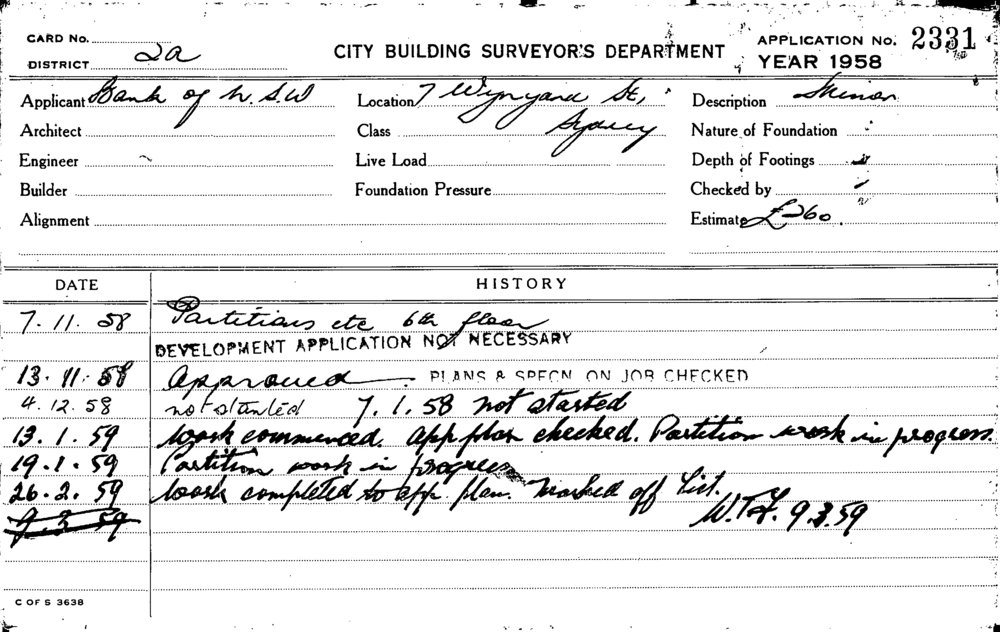 CARD No.
DISTRICT 2a
CITY BUILDING SURVEYOR'S DEPARTMENT
APPLICATION No. 2331
YEAR 1958
Applicant Bank of N.S.W
Location 7 Wynyard St,
Sydney
Description Minor
Architect
Class
Nature of Foundation
Engineer
Live Load
Depth of Footings
Builder
Foundation Pressure
Checked by
Alignment
Estimate £260.
DATE HISTORY
7. 11. 58 Partitions etc 6th floor
DEVELOPMENT APPLICATION NOT NECESSARY
13. 11. 58 Approved PLANS & SPECN ON JOB CHECKED
4. 12. 58 not started 7. 1. 58 not started
13. 1. 59 Work commenced. App plan checked. Partition work in progress.
19. 1. 59 Partition work in progress
26. 2. 59 Work completed to app. plan. Marked off List.
9. 3. 59 9.3.59
C OF S 3638